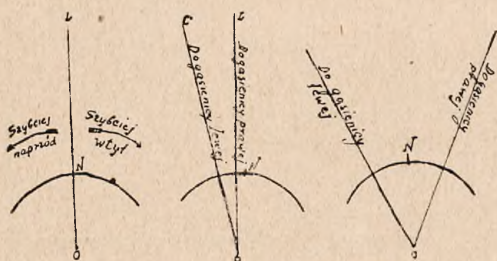 L
Szybciej
naprzód
Szybciej
w tył
N
O
C
L
Do gąsienicy lewej
Do gąsienicy prawej
N
O
Do gąsienicy
lewej
Do gąsienicy
prawej
N
O